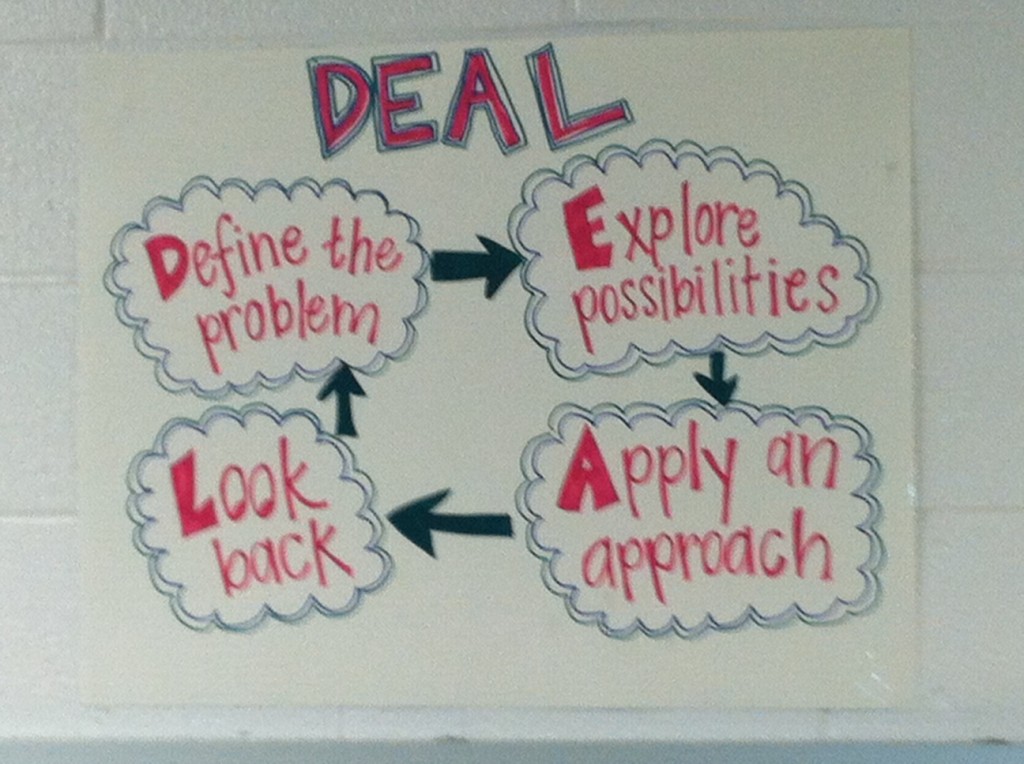 DEAL
Define the
problem
Explore
possibilities
Apply an
approach
Look
back